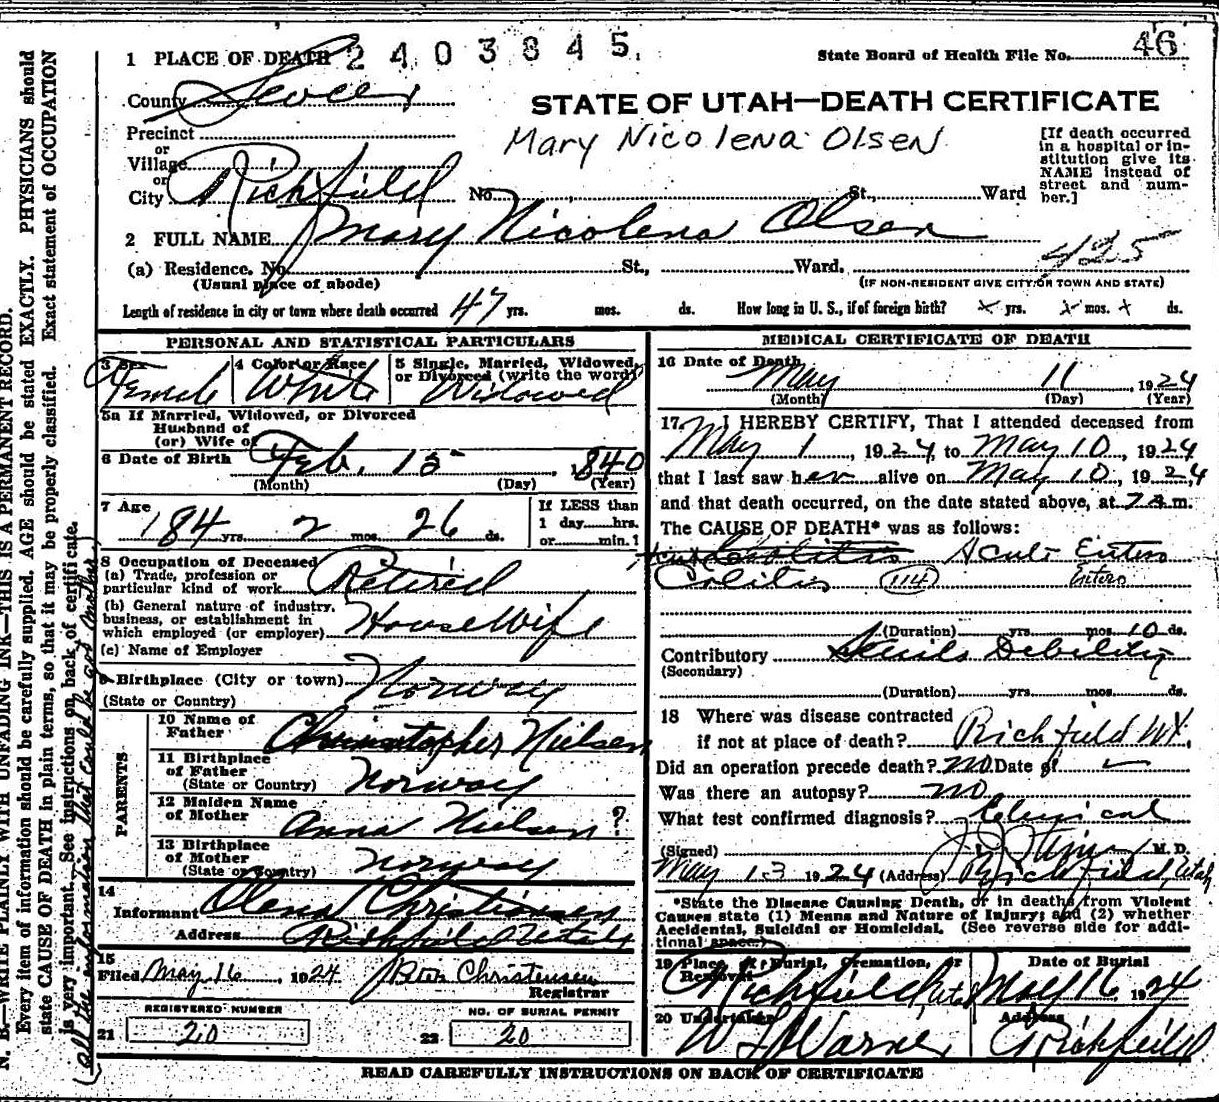 1 PLACE OF DEATH 2403845
State Board of Health File No. 46
County Sevier
STATE OF UTAH—DEATH CERTIFICATE
Mary Nicolena Olsen
Precinct
or
Village
or
City Richfield No. St. Ward
[If death occurred
in a hospital or in-
stitution give its
NAME instead of
street and num-
ber.]
2 FULL NAME Mary Nicolena Olsen
425
(a) Residence. No. St., Ward.
(Usual place of abode) (IF NON-RESIDENT GIVE CITY OR TOWN AND STATE)
Length of residence in city or town where death occurred 47 yrs. mos. ds. How long in U. S., if of foreign birth? x yrs. x mos. x ds.
PERSONAL AND STATISTICAL PARTICULARS
3 Sex 4 Color or Race 5 Single, Married, Widowed,
or Divorced (write the word)
Female White Widowed
5a If Married, Widowed, or Divorced
Husband of
(or) Wife of
6 Date of Birth Feb. 15 1840
(Month) (Day) (Year)
7 Age 84 yrs. 2 mos. 26 ds.
If LESS than
1 day hrs.
or min.?
8 Occupation of Deceased
(a) Trade, profession or
particular kind of work Retired
(b) General nature of industry,
business, or establishment in
which employed (or employer) House Wife
(c) Name of Employer
9 Birthplace (City or town) Norway
(State or Country)
PARENTS
10 Name of
Father Christopher Nielsen
11 Birthplace
of Father
(State or Country) Norway
12 Maiden Name
of Mother Anna Nielsen?
13 Birthplace
of Mother
(State or Country) Norway
14
Informant Olena Christensen
Address Richfield Utah
15
Filed May 16, 1924 Peter Christensen
Registrar
REGISTERED NUMBER NO. OF BURIAL PERMIT
21 20 22 20
MEDICAL CERTIFICATE OF DEATH
16 Date of Death
May 11, 1924
(Month) (Day) (Year)
17 I HEREBY CERTIFY, That I attended deceased from
May 1, 1924, to May 10, 1924
that I last saw her alive on May 10, 1924
and that death occurred, on the date stated above, at 7 a m.
The CAUSE OF DEATH* was as follows:
Acute Entero
Colitis (114) Entero
(Duration) yrs. mos. 10 ds.
Contributory Senile Debility
(Secondary)
(Duration) yrs. mos. ds.
18 Where was disease contracted
if not at place of death? Richfield Ut.
Did an operation precede death? no Date of
Was there an autopsy? no
What test confirmed diagnosis? Clinical
(Signed) M. D.
May 13 1924 (Address) Richfield, Utah
*State the Disease Causing Death, or in deaths from Violent
Causes state (1) Means and Nature of Injury; and (2) whether
Accidental, Suicidal or Homicidal. (See reverse side for addi-
tional space.)
19 Place of Burial, Cremation, or
Removal Date of Burial
Richfield Utah May 16 1924
20 Undertaker Address
Warner Richfield
READ CAREFULLY INSTRUCTIONS ON BACK OF CERTIFICATE
N. B.—WRITE PLAINLY WITH UNFADING INK—THIS IS A PERMANENT RECORD.
Every item of information should be carefully supplied. AGE should be stated EXACTLY. PHYSICIANS should
state CAUSE OF DEATH in plain terms, so that it may be properly classified. Exact statement of OCCUPATION
is very important. See instructions on back of certificate.
(all the information that could be got